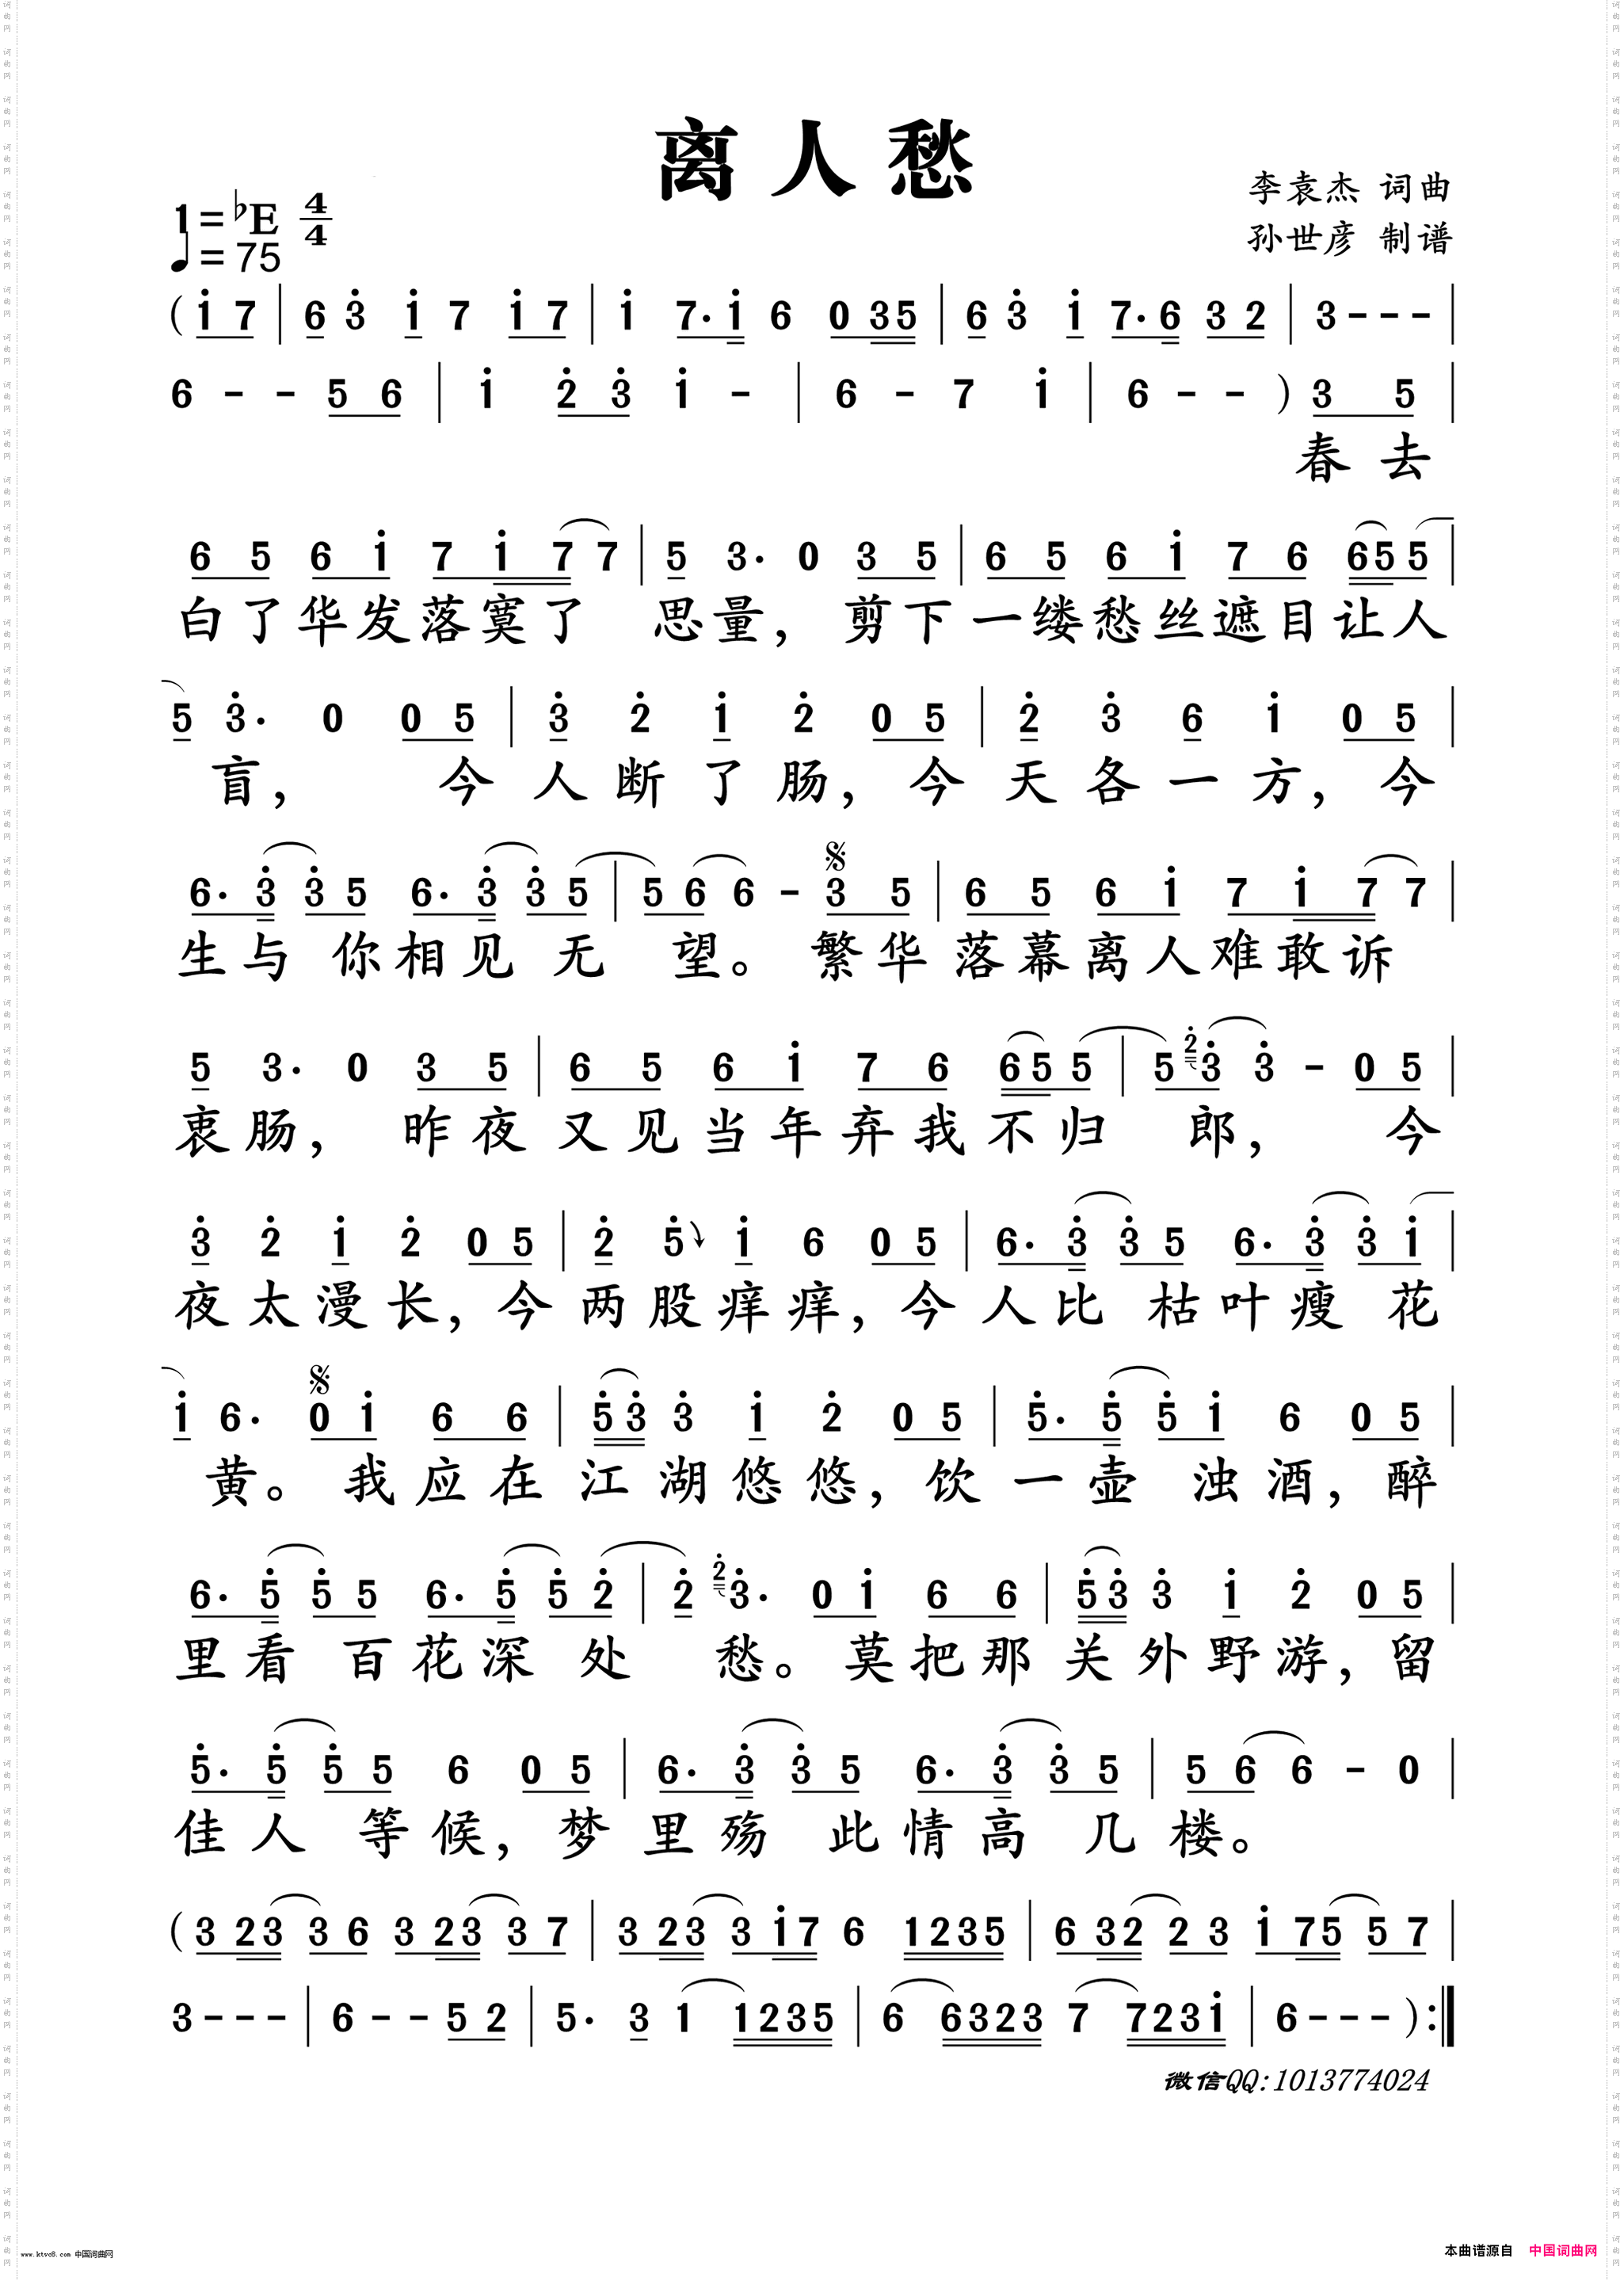 离人愁
李袁杰 词曲
孙世彦 制谱
1=♭E 4/4
♩=75
( i 7 | 6 3̇ i 7 i 7 | i 7· i 6 0 3 5 | 6 3̇ i 7· 6 3 2 | 3 - - - |
6 - - 5 6 | i 2̇ 3̇ i - | 6 - 7 i | 6 - - ) 3 5 |
春去
6 5 6 i 7 i 7 7 | 5 3· 0 3 5 | 6 5 6 i 7 6 6 5 5 |
白了华发落寞了 思量，剪下一缕愁丝遮目让人
5 3̇· 0 0 5 | 3̇ 2̇ i 2̇ 0 5 | 2̇ 3̇ 6 i 0 5 |
盲， 今人断了肠，今天各一方，今
6· 3̇ 3̇ 5 6· 3̇ 3̇ 5 | 5 6 6 - 𝄋 3 5 | 6 5 6 i 7 i 7 7 |
生与 你相见 无 望。繁华落幕离人难敢诉
5 3· 0 3 5 | 6 5 6 i 7 6 6 5 5 | 5 2̇ 3̇ 3̇ - 0 5 |
衷肠，昨夜又见当年弃我不归 郎， 今
3̇ 2̇ i 2̇ 0 5 | 2̇ 5̇ i 6 0 5 | 6· 3̇ 3̇ 5 6· 3̇ 3̇ i |
夜太漫长，今两股痒痒，今人比 枯叶瘦 花
i 6· 𝄋 0 i 6 6 | 5̇ 3̇ 3̇ i 2̇ 0 5 | 5̇· 5̇ 5̇ i 6 0 5 |
黄。我应在江湖悠悠，饮一壶 浊酒，醉
6· 5̇ 5̇ 5 6· 5̇ 5̇ 2̇ | 2̇ 2̇ 3̇· 0 i 6 6 | 5̇ 3̇ 3̇ i 2̇ 0 5 |
里看 百花深 处 愁。莫把那关外野游，留
5̇· 5̇ 5̇ 5 6 0 5 | 6· 3̇ 3̇ 5 6· 3̇ 3̇ 5 | 5 6 6 - 0 |
佳人 等候，梦里殇 此情高 几楼。
( 3 2 3 3 6 3 2 3 3 7 | 3 2 3 3 i 7 6 1 2 3 5 | 6 3 2 2 3 i 7 5 5 7 |
3 - - - | 6 - - 5 2 | 5· 3 1 1 2 3 5 | 6 6 3 2 3 7 7 2 3 i | 6 - - - ) :‖
微信QQ:1013774024
www.ktvc8.com 中国词曲网
本曲谱源自 中国词曲网